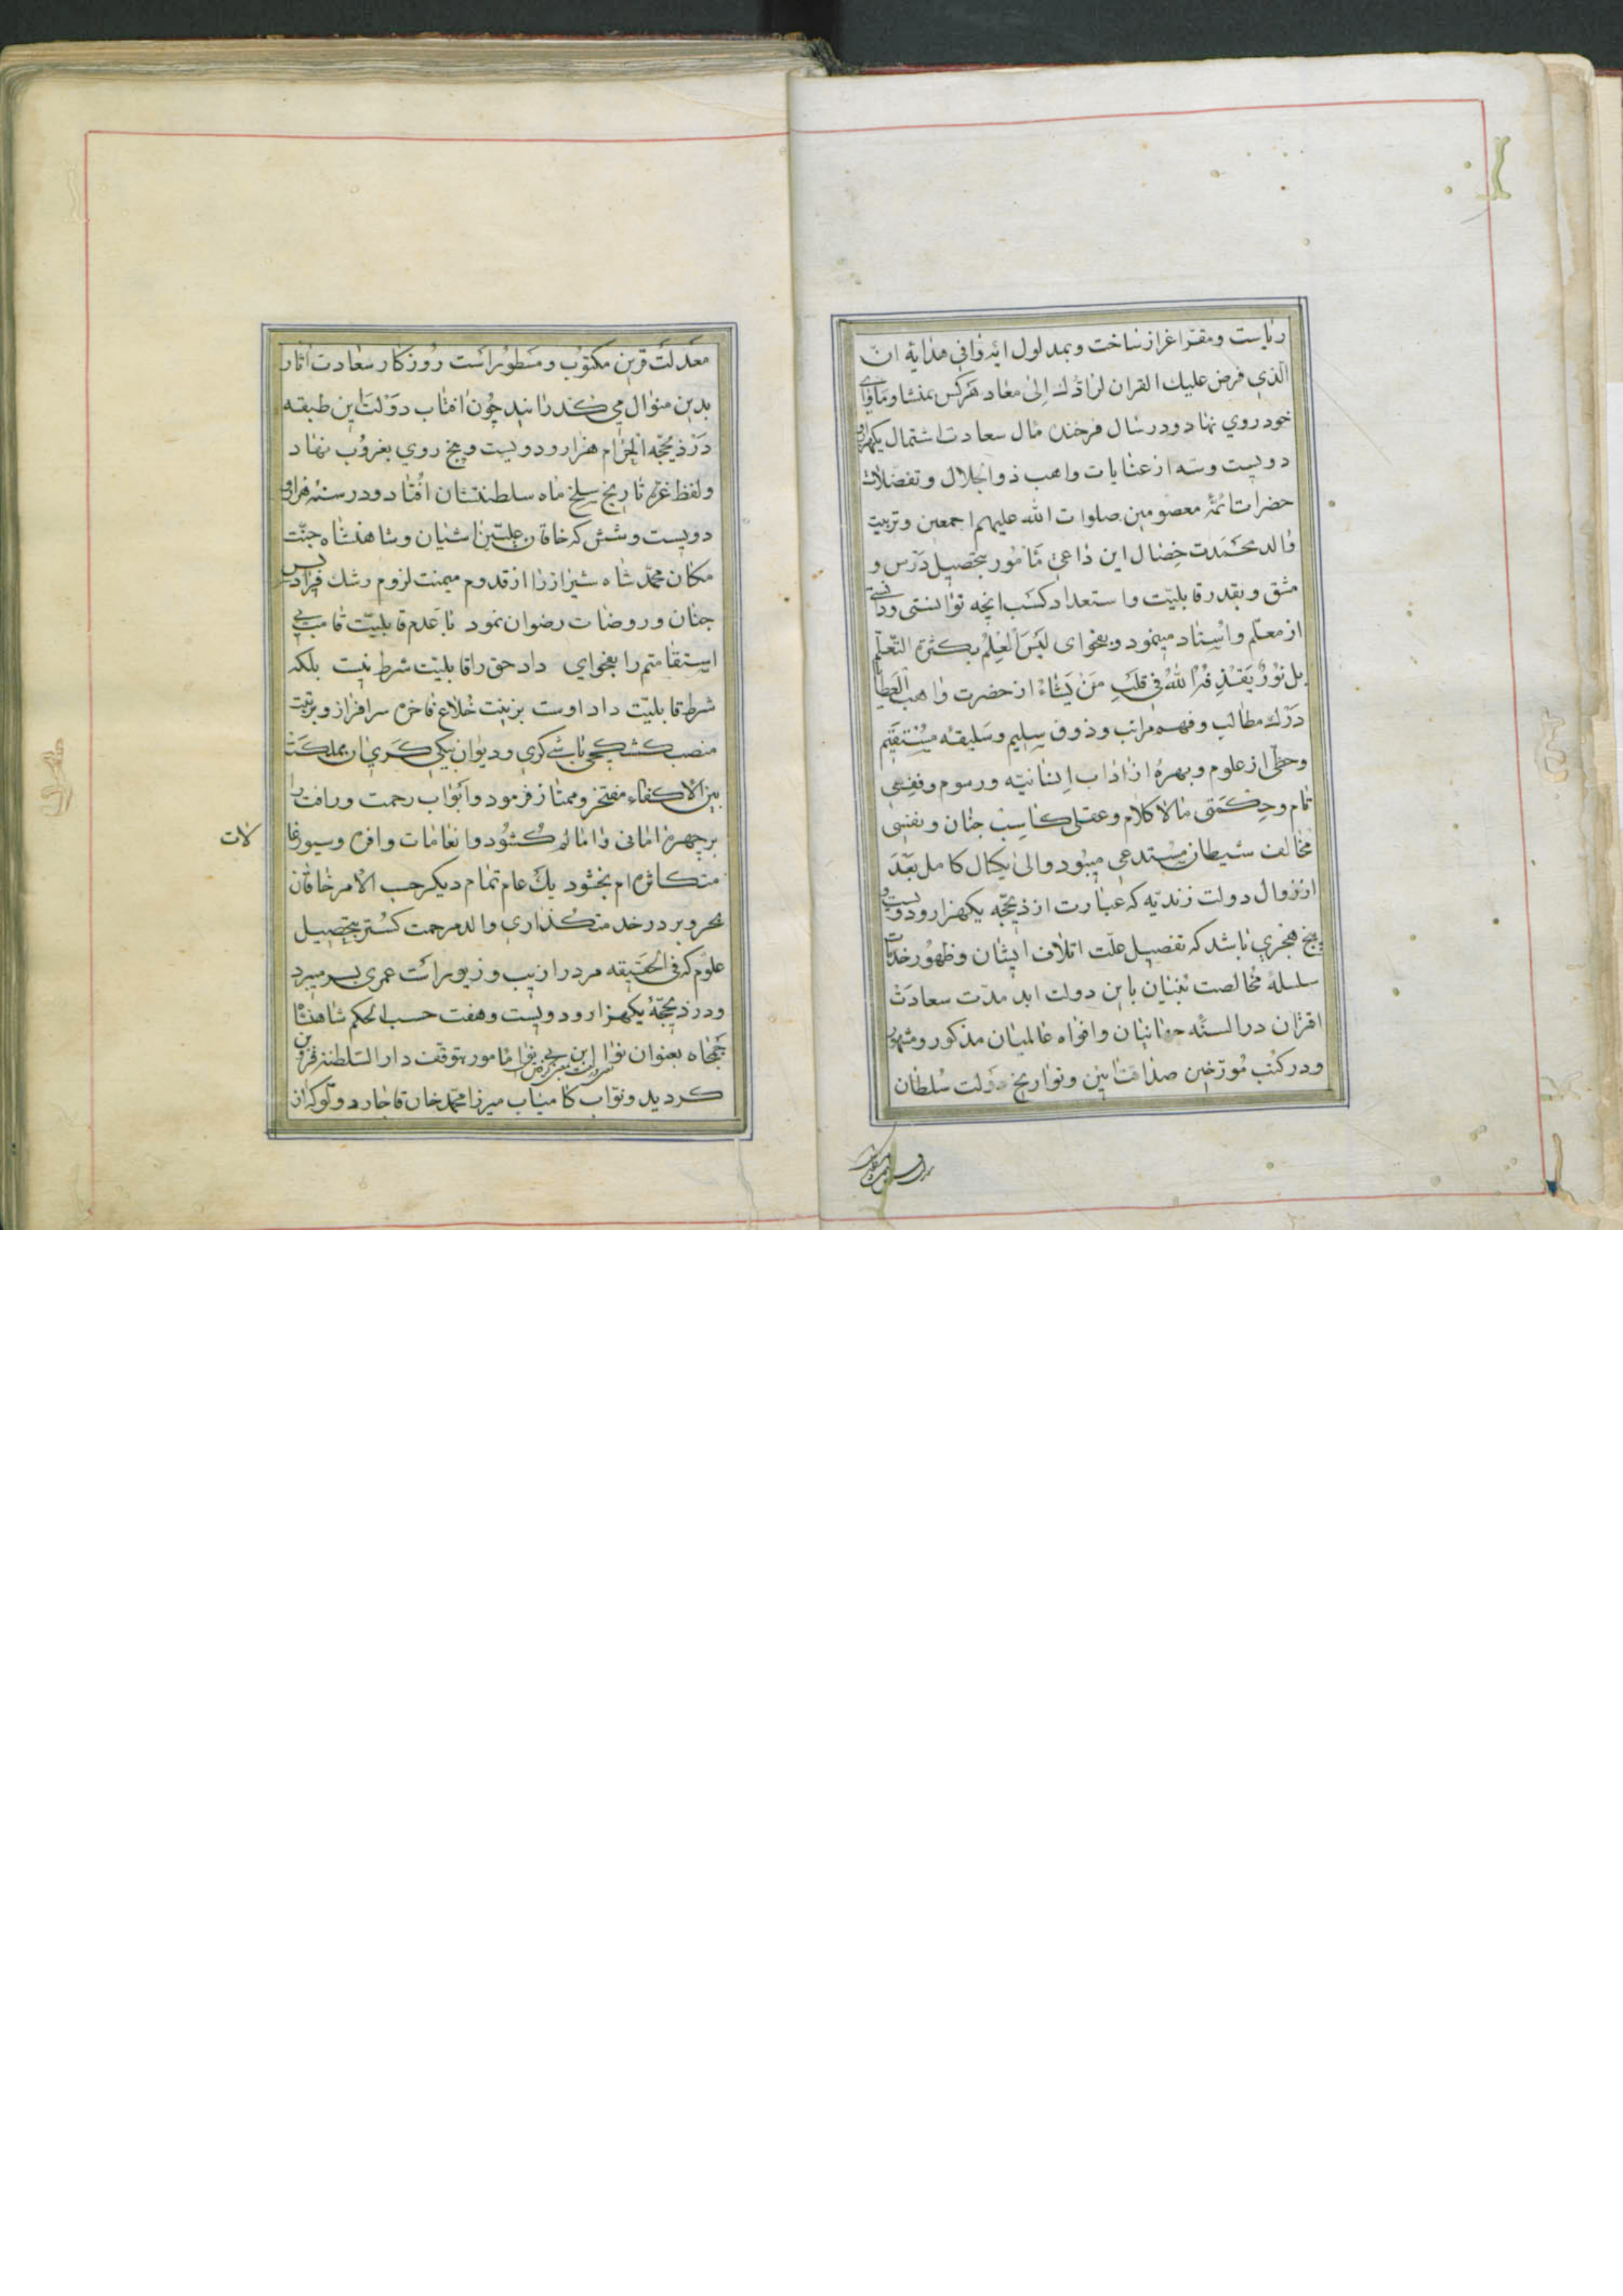 ریاست و مقر اعزاز ساخت و بمدلول ایه وافی هدایه ان
الّذی فرض علیک القران لرادّک اِلیٰ معاد هرکس بمنشا و ماوای
خود روی نهاد و در سال فرخنده مال سعادت اشتمال یکهزار و
دویست و سه از عنایات واهب ذوالجلال و تفضلات
حضرات ائمّهٔ معصومین صلوات الله علیهم اجمعین و تربیت
والد محمدت خصال این داعی مامور بتحصیل درس و
مشق و بقدر قابلیّت و استعداد کسب انچه توانستی و دانستی
از معلّم و اُستاد مینمود و بفحوای لَیْسَ العِلْمُ بکثرة التّعلّم
بل نُورٌ یَقْذِفُهُ اللهُ فی قلبِ مَنْ یَشاءُ از حضرت واهب العطایا
درک مطالب و فهم مراتب و ذوق سلیم و سلیقه مستقیم
و حظّی از علوم و بهرهٔ از اداب انسانیّه و رسوم و فقهی
تمام و حکمتی مالاکلام و عقلی کاسب جنان و نفسی
مخالف شیطان مستدعی میبود و الیٰ یکسال کامل بَعْدَ
از زوال دولت زندیّه که عبارت از ذیحجّه یکهزار و دویست و
پنج هجری باشد که تفصیل علّت اتلاف ایشان و ظهور خدمات
سلسلهٔ مخالصت بنیان باین دولت ابد مدّت سعادت
اقتران در السنّه جهانیان و افواه عالمیان مذکور و مشهور
و در کتب مورّخین صداقت این و تواریخ دولت سُلطان
معدلت قرین مکتوب و مسطور است روزکار سعادت اثار
بدین منوال می کذرانید چون افتاب دولت این طبقه
در ذیحجّه الحرام هزار و دویست و پنج روی بغروب نهاد
و لفظ غرّه تاریخ سلخ ماه سلطنتشان افتاد و در سنه هزار و
دویست و شش که خاقان علیّین اشیان و شاهنشاه جنّت
مکان محمّد شاه شیراز را از قدوم میمنت لزوم رشک فرادیس
جنان و روضات رضوان نمود با عدم قابلیّت قامت بی
استقامتم را بفحوای داد حق را قابلیّت شرط نیست بلکه
شرط قابلیّت داد اوست بزینت خلاع فاخره سرافراز و برتبت
منصب کشیکچی باشی کری و دیوان بیکی کری ان مملکت
بین الاکفاء مفتخر و ممتاز فرمود و ابواب رحمت و رافت را
بر چهره امانی و امالم کُشُود و انعامات وافره و سیورغا
لات
متکاثره ام بخشود یک عام تمام دیکر حسب الامر خاقان
بحر و بر در خدمتکذاری والد مرحمت کستر بتحصیل
علوم که فی الحقیقه مرد را زیب و زیور است عمری بسر میبرد
و در ذیحجّهٔ یکهزار و دویست و هفت حسب الحکم شاهنشاه
جمجاه بعنوان نوا این بی نوا مامور بتوقف دار السّلطنه قزوین
کردید و نوّاب کامیاب میرزا محمّد خان قاجار دولو که از